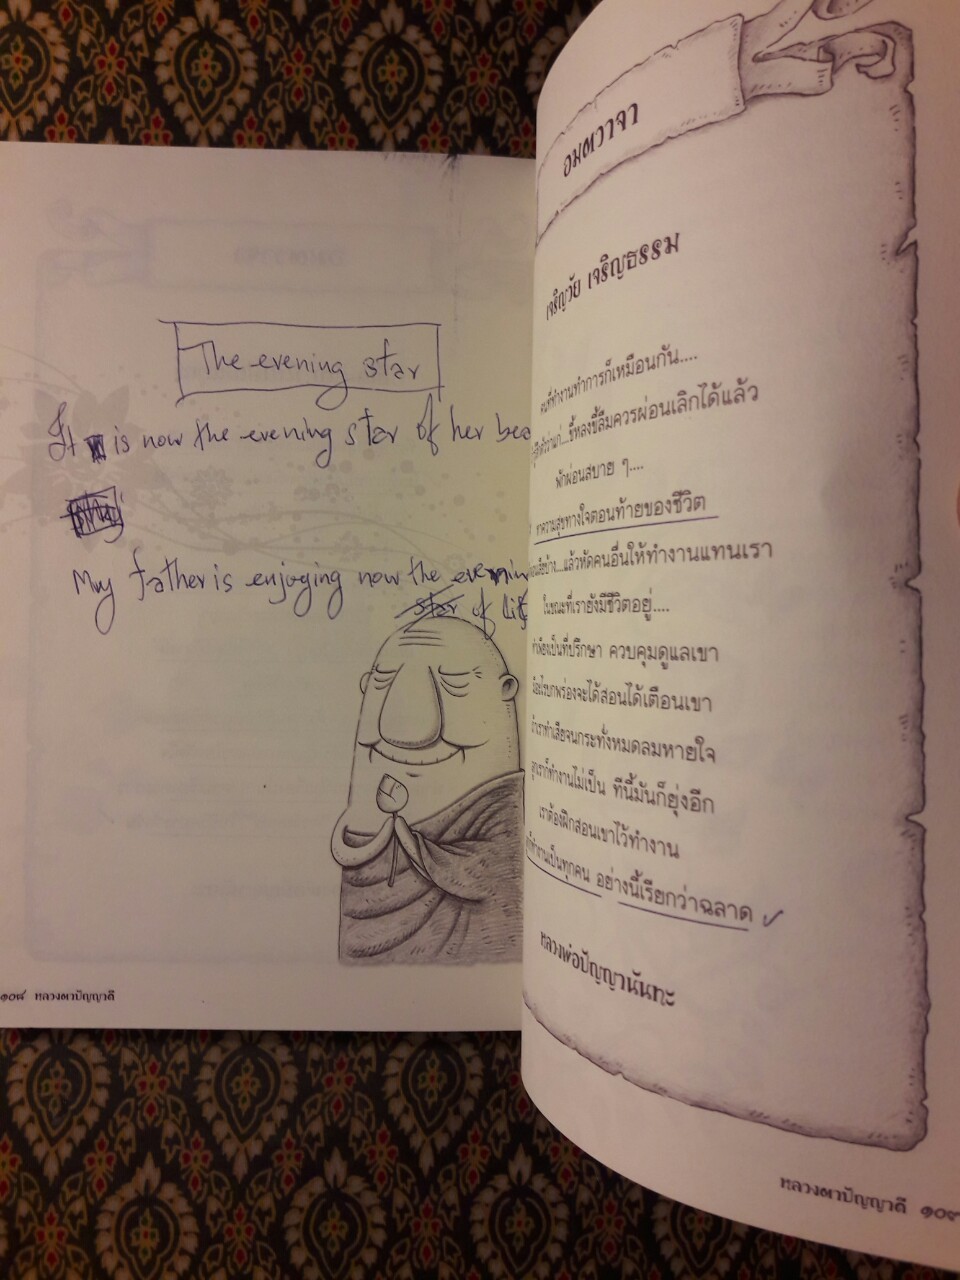 The evening star
It is now the evening star of her
My father is enjoying now the evening
star of life
๑๐๘ หลวงตาปัญญาดี
อมตวาจา
เจริญวัย เจริญธรรม
คนที่ทำงานทำการก็เหมือนกัน....
ขี้หลงขี้ลืมควรผ่อนเลิกได้แล้ว
พักผ่อนสบาย ๆ....
หาความสุขทางใจตอนท้ายของชีวิต
แล้วหัดคนอื่นให้ทำงานแทนเรา
ในขณะที่เรายังมีชีวิตอยู่....
ทำเพื่อเป็นที่ปรึกษา ควบคุมดูแลเขา
มีอะไรบกพร่องจะได้สอนได้เตือนเขา
ถ้าเราทำเสียจนกระทั่งหมดลมหายใจ
ลูกเราก็ทำงานไม่เป็น ทีนี้มันก็ยุ่งอีก
เราต้องฝึกสอนเขาไว้ทำงาน
ทำงานเป็นทุกคน อย่างนี้เรียกว่าฉลาด
หลวงพ่อปัญญานันทะ
หลวงตาปัญญาดี ๑๐๙